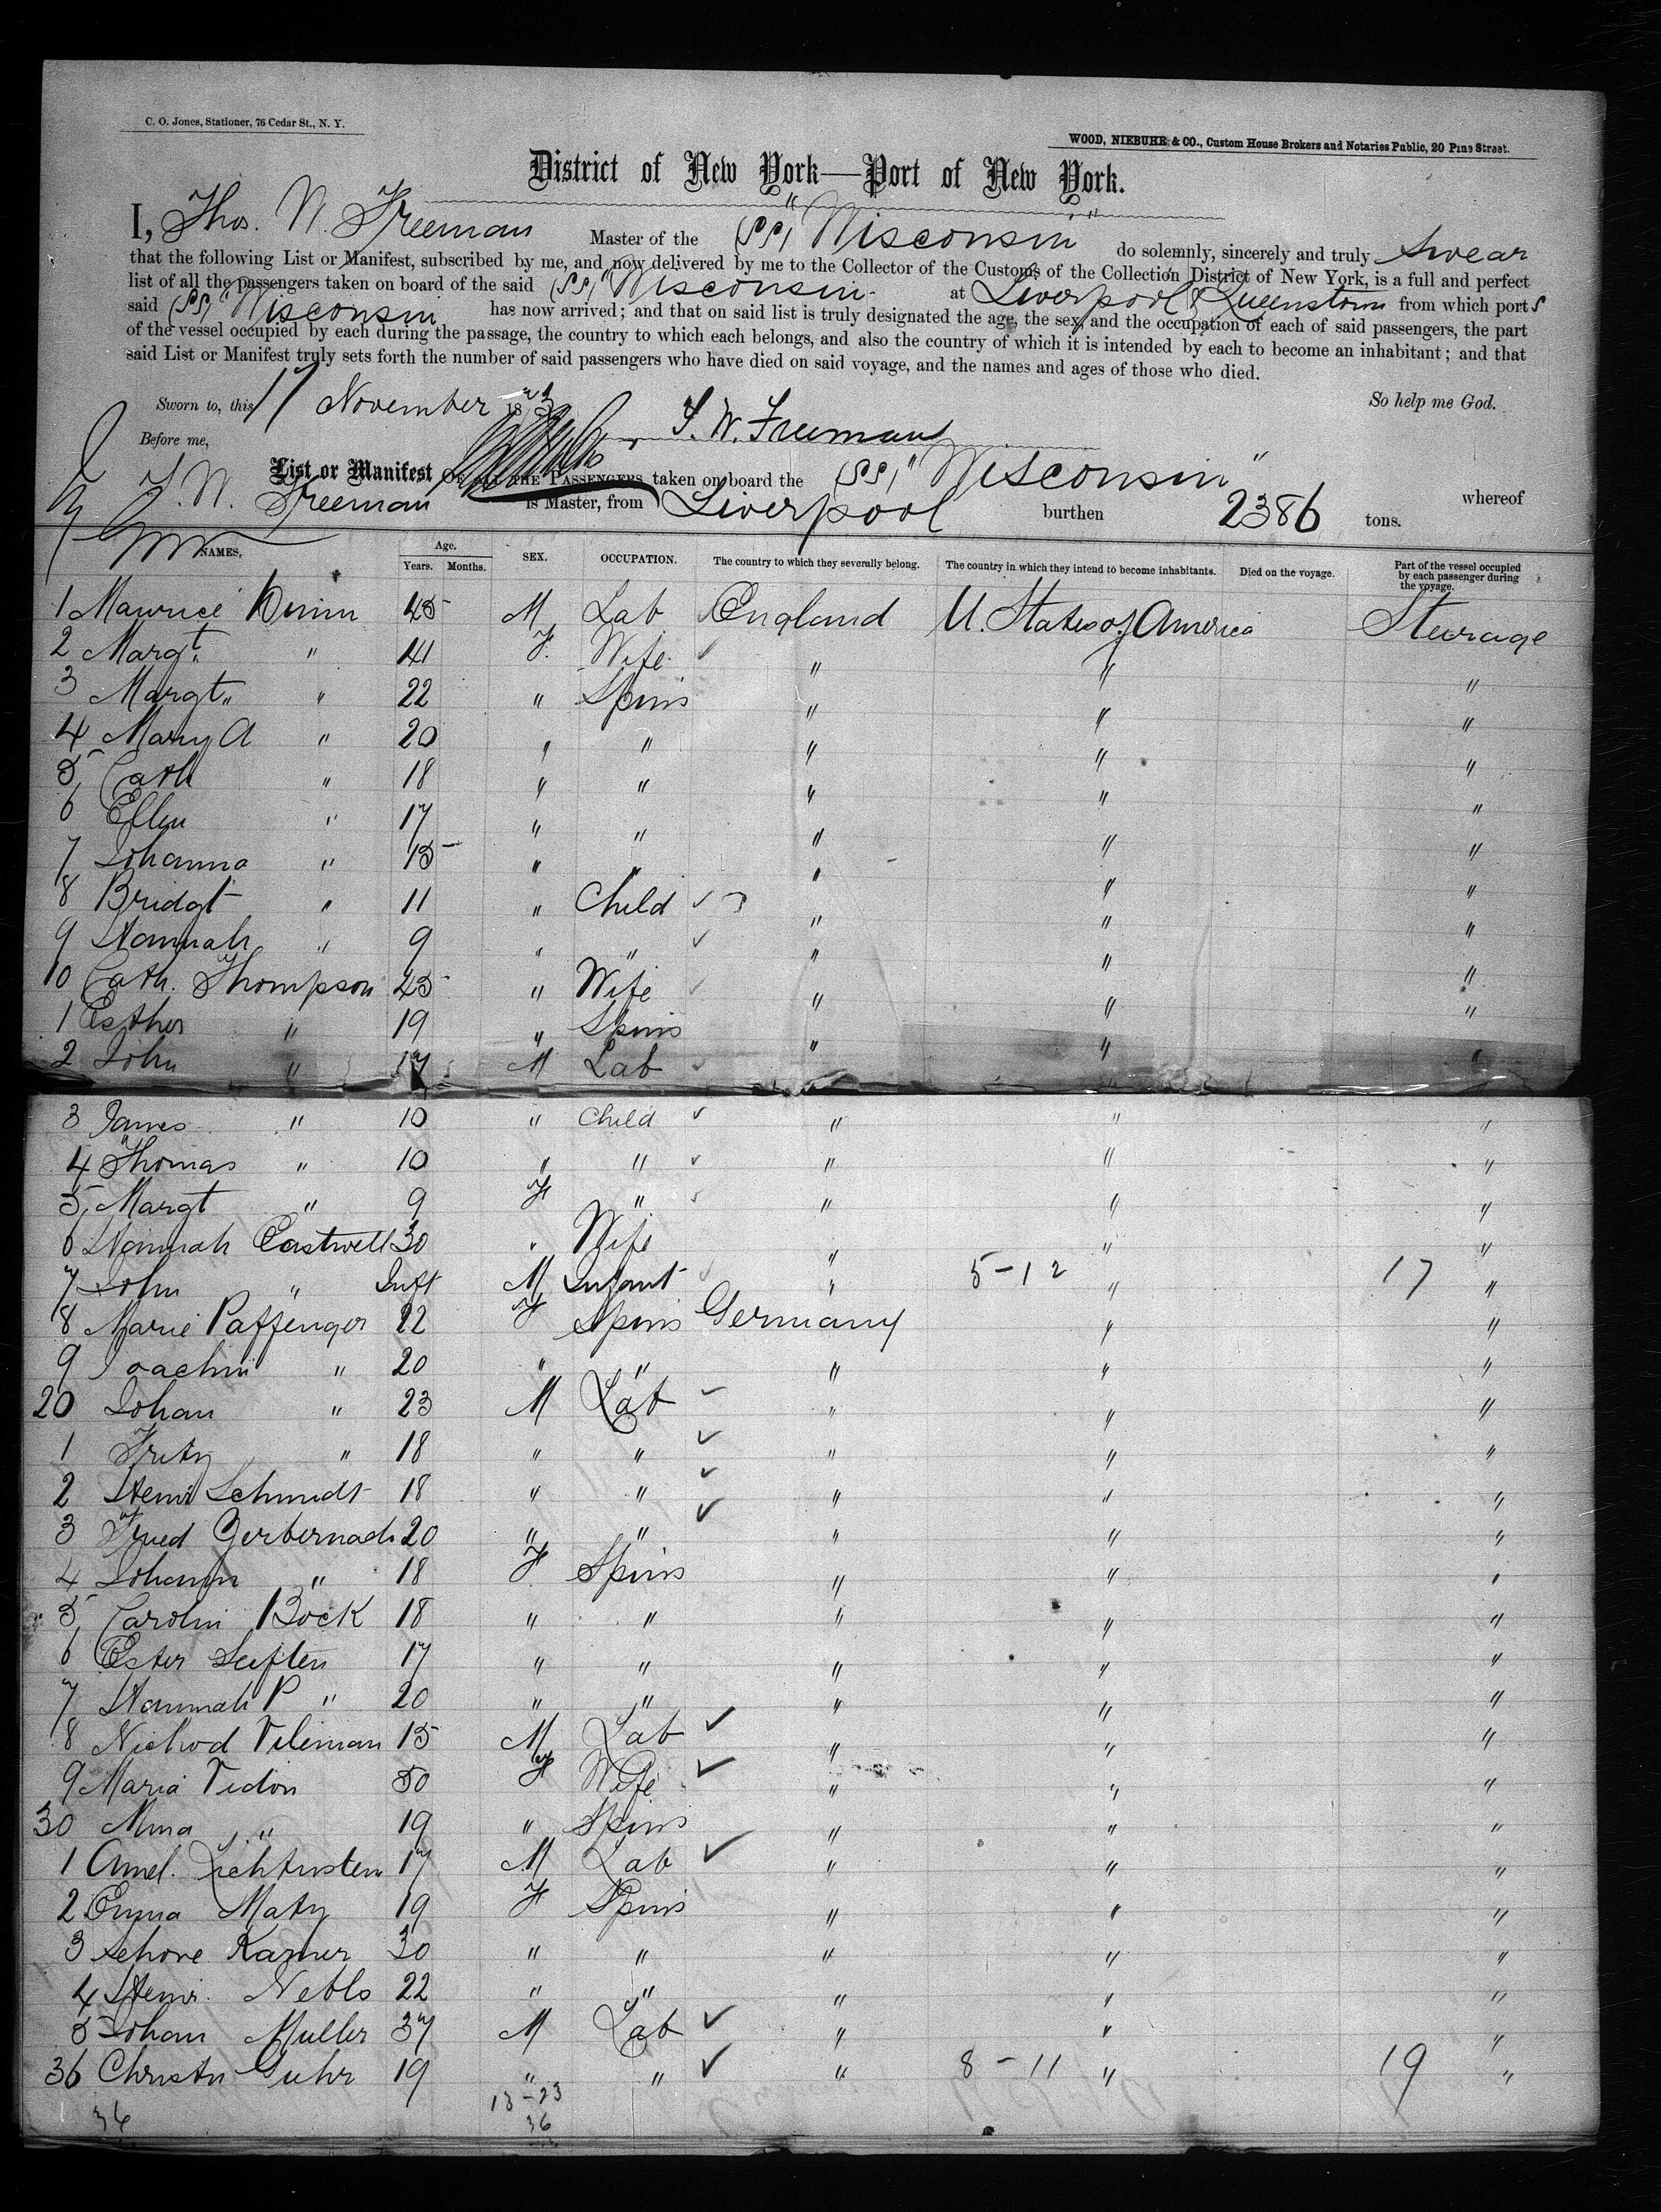 C. O. Jones, Stationer, 76 Cedar St., N. Y.
WOOD, NIEBUHR & CO., Custom House Brokers and Notaries Public, 20 Pine Street.
District of New York—Port of New York.
I, Thos. W. Freeman Master of the (SS) "Wisconsin" do solemnly, sincerely and truly swear
that the following List or Manifest, subscribed by me, and now delivered by me to the Collector of the Customs of the Collection District of New York, is a full and perfect
list of all the passengers taken on board of the said (SS) "Wisconsin" at Liverpool & Queenstown from which ports
said (SS) "Wisconsin has now arrived; and that on said list is truly designated the age, the sex, and the occupation of each of said passengers, the part
of the vessel occupied by each during the passage, the country to which each belongs, and also the country of which it is intended by each to become an inhabitant; and that
said List or Manifest truly sets forth the number of said passengers who have died on said voyage, and the names and ages of those who died.
Sworn to, this 17 November 18 So help me God.
Before me, T. W. Freeman
List or Manifest OF ALL THE PASSENGERS taken on board the (SS) "Wisconsin" whereof
T. W. Freeman is Master, from Liverpool burthen 2386 tons.
NAMES. Age. Years. Months. SEX. OCCUPATION. The country to which they severally belong. The country in which they intend to become inhabitants. Died on the voyage. Part of the vessel occupied by each passenger during the voyage.
1 Maurice 45 M Lab England U. States of America Steerage
2 Margt. " 41 F. Wife " " "
3 Margt. " 22 " Spins " " "
4 Mary A " 20 " " " " "
5 Cath " 18 " " " " "
6 Ellen " 17 " " " " "
7 Johanna " 15 " " " " "
8 Bridgt " 11 " Child " " "
9 Hannah " 9 " " " " "
10 Cath. Thompson 45 " Wife " " "
1 Esther " 19 " Spins " " "
2 John " 17 M Lab " " "
3 James " 10 " Child " " "
4 Thomas " 10 " " " " "
5 Margt " 9 F " " " "
6 Hannah Eastwell 30 " Wife " " "
7 John " Inft M Infant " 5-12 " 17 "
8 Marie Paffenger 22 F Spins Germany " "
9 Joachim " 20 " " " " "
20 Johan " 23 M Lab " " "
1 Fritz " 18 " " " " "
2 Henri Schmidt 18 " " " " "
3 Fried 20 " " " " "
4 Johann " 18 F Spins " " "
5 Carolin Bock 18 " " " " "
6 Ester 17 " " " " "
7 Hannah P " 20 " " " " "
8 15 M Lab " " "
9 Maria 50 F Wife " " "
30 Mina " 19 " Spins " " "
1 Amel. 17 M Lab " " "
2 Emma Matz 19 F Spins " " "
3 30 " " " " "
4 Henri. 22 " " " " "
5 Johan Muller 37 M Lab " " "
36 19 " " " 8-11 " 19 "
36 13-23
36